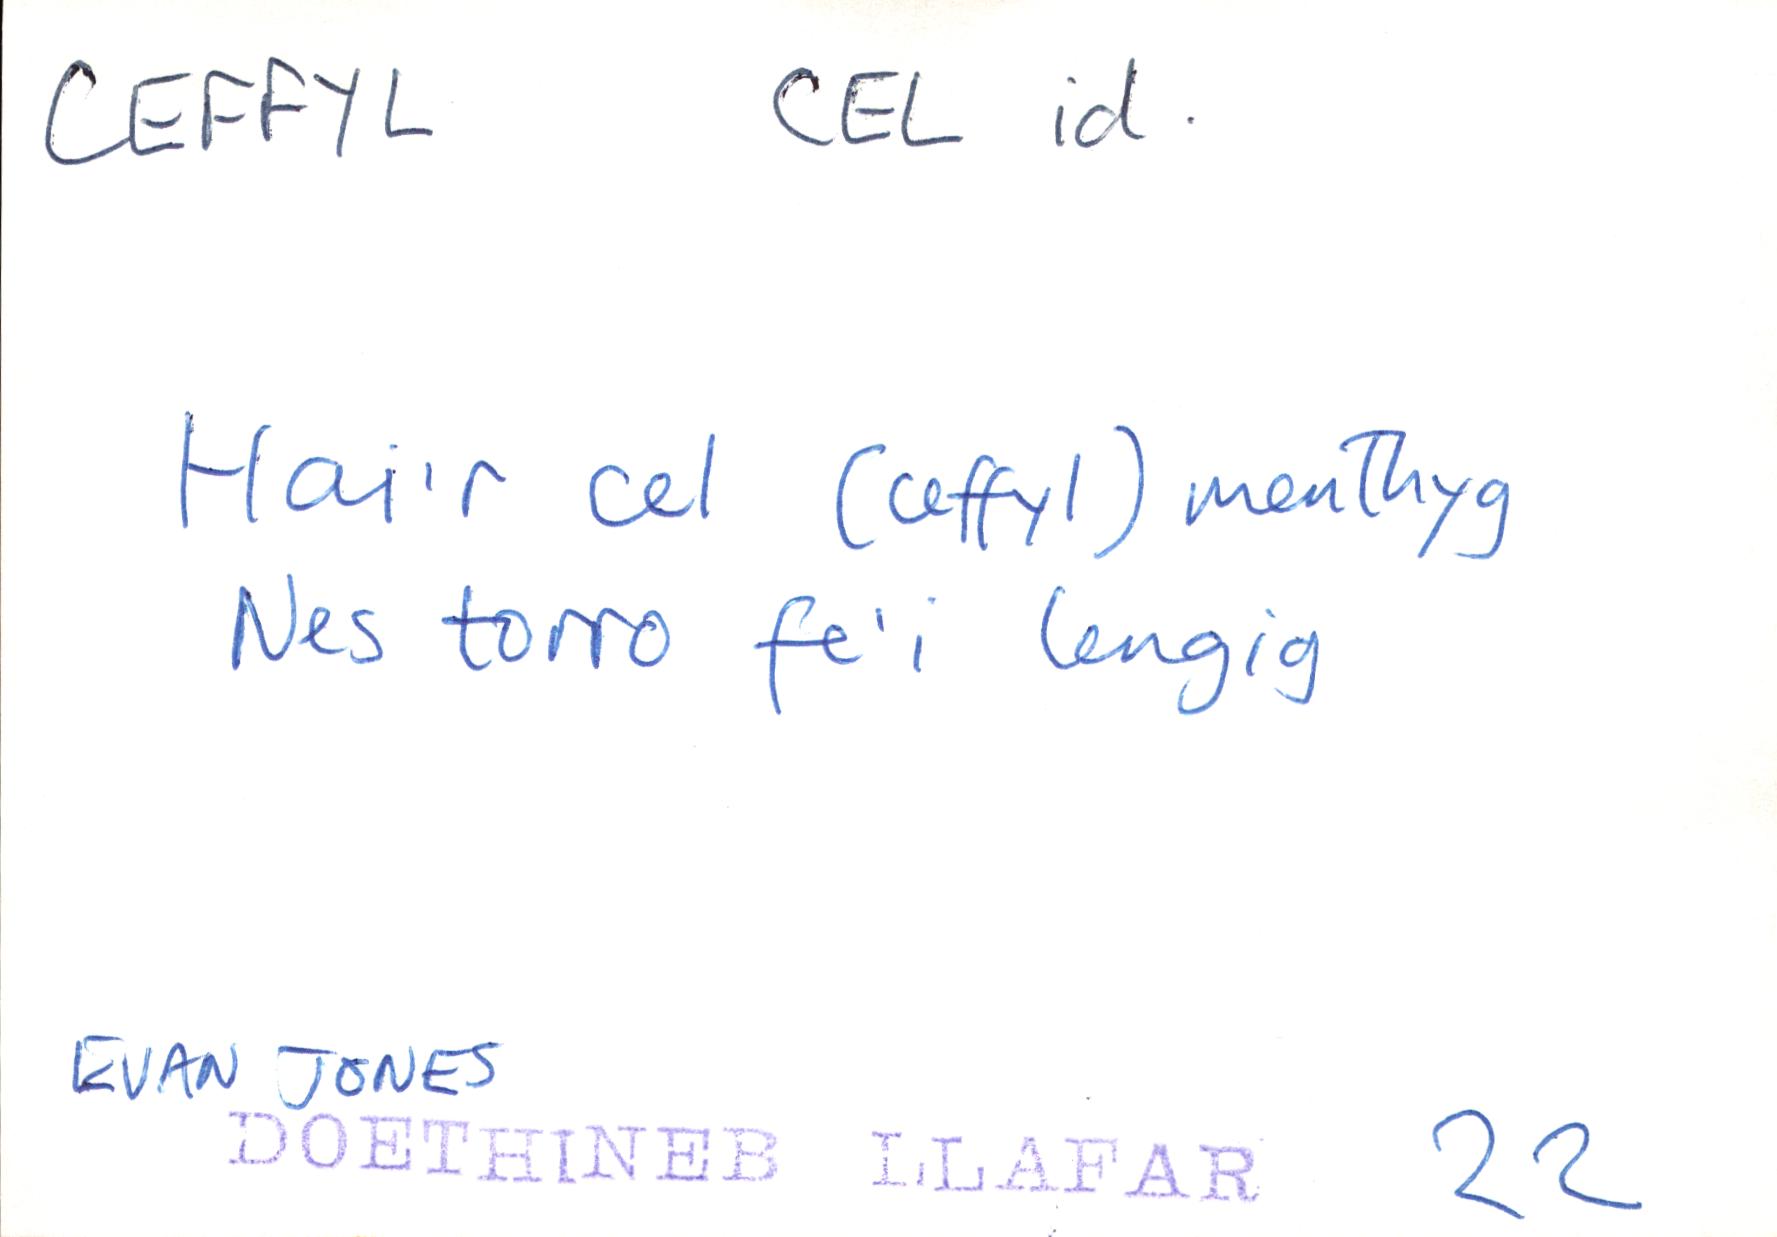 CEFFYL CEL id.
Hai'r cel (ceffyl) menthyg
Nes torro fe'i lengig
EVAN JONES
DOETHINEB LLAFAR 22